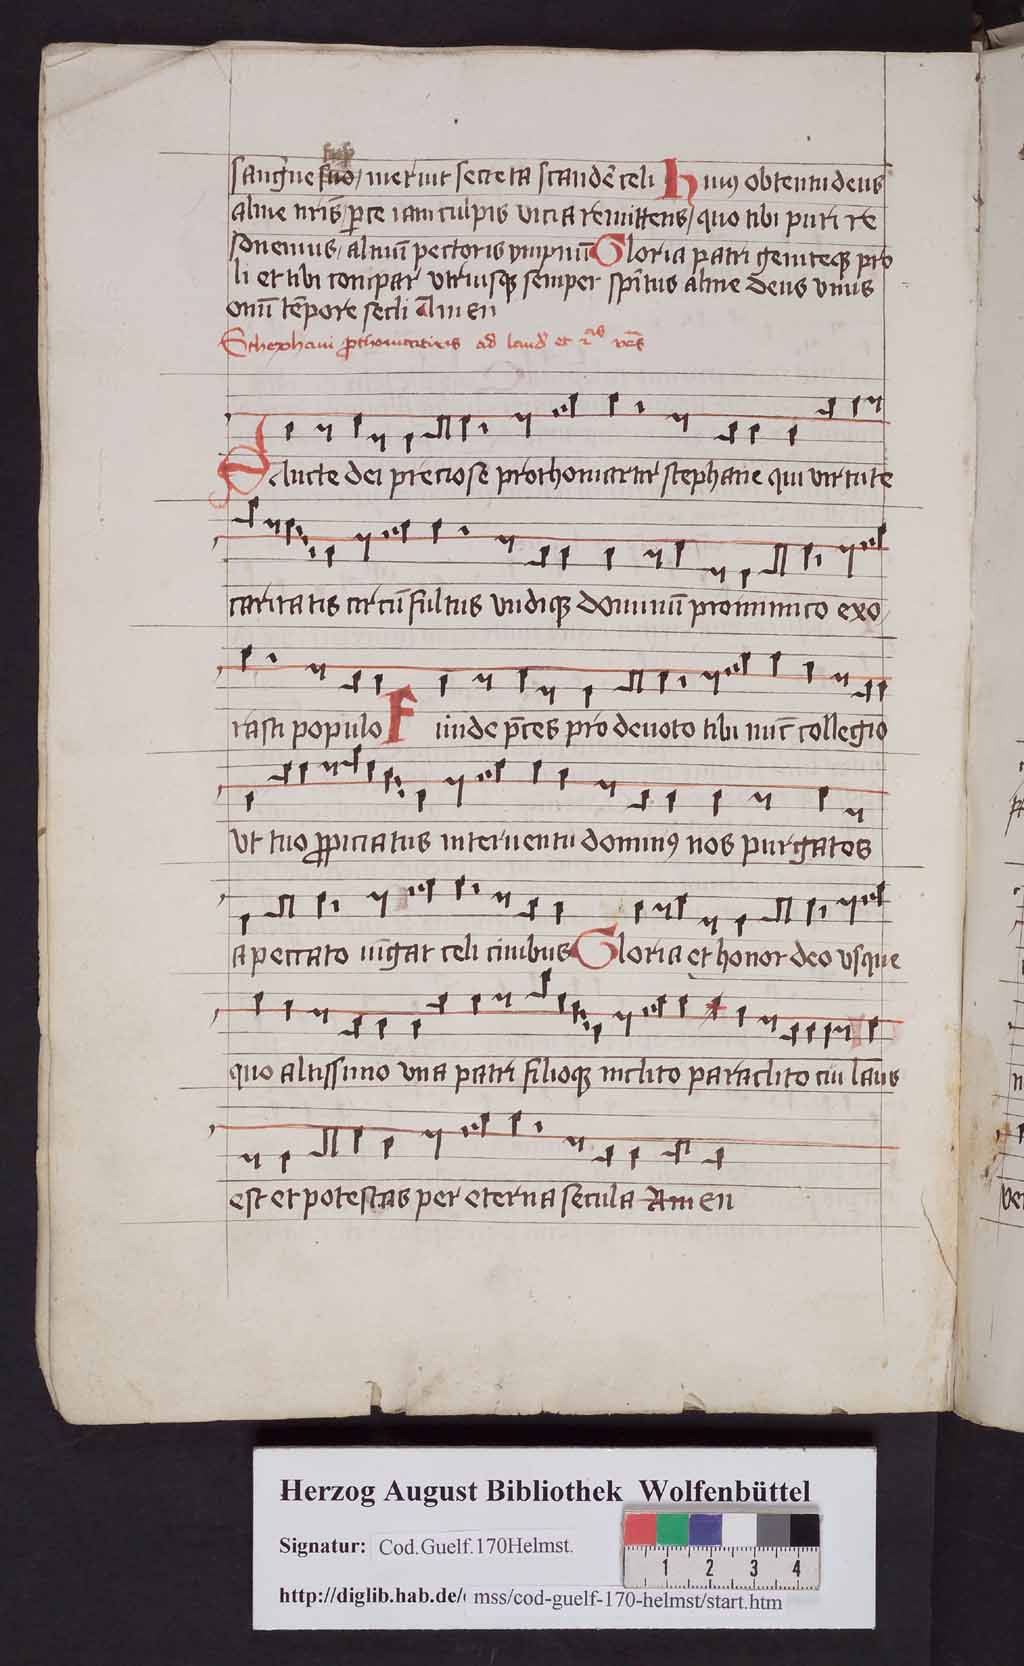 sangu̇e suo / meruit secreta scandē celi Huiꝰ obtentu deus
alme nr̄is / ꝑce iam culpis vicia remittens / quo tibi puri re
sonemus / almū pectoris ympnū Gloria patri geniteqꝫ pro
li et tibi compar vtriusqꝫ semper spīritus alme deus vnus
omī tēpore secli Amen
Stephani ꝓthomartiris ad laud et 2as ves
Sancte dei preciose prothomartir stephane qui virtute
caritatis circū fultus vndiqꝫ dominū pro inimico exo
rasti populo Funde p̄ces pro deuoto tibi nūc collegio
vt tuo ꝓpiciatus interuentu dominꝰ nos purgatos
a peccato iūgat celi ciuibus Gloria et honor deo vsque
quo altissimo vna patri filioqꝫ inclito paraclito cui laus
est et potestas per eterna secula Amen
Herzog August Bibliothek Wolfenbüttel
Signatur: Cod.Guelf.170Helmst.
1 2 3 4
http://diglib.hab.de/ mss/cod-guelf-170-helmst/start.htm